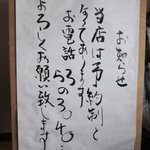 お知らせ
当店は予約制と
なっております
お電話
よろしくお願い致します